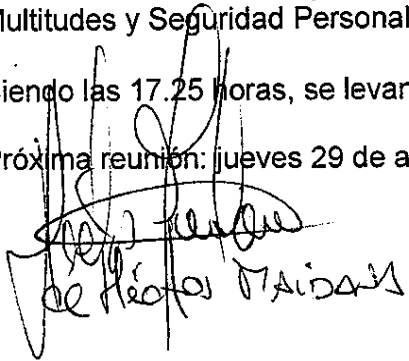 Multitudes y Seguridad Personal
siendo las 17.25 horas, se levan
Próxima reunión: jueves 29 de a
de Héctor MAIDANA